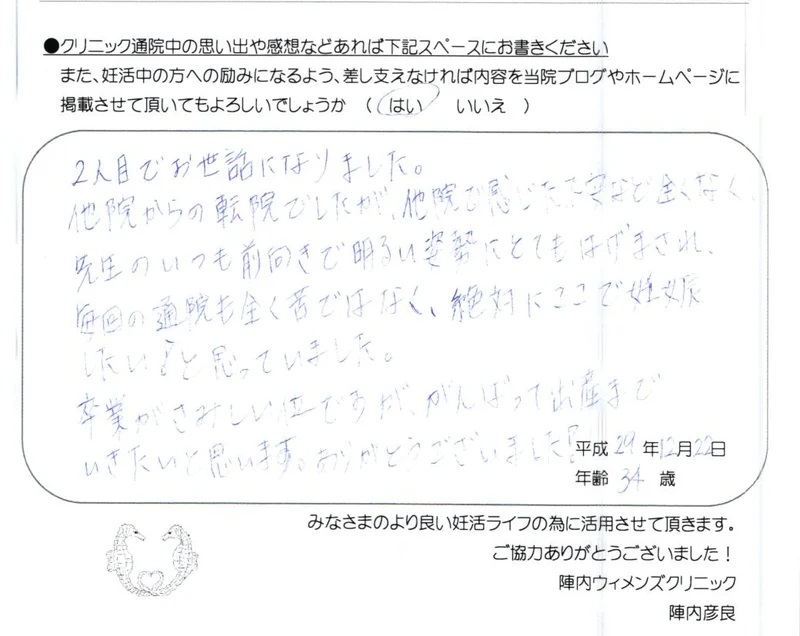 ●クリニック通院中の思い出や感想などあれば下記スペースにお書きください
また、妊活中の方への励みになるよう、差し支えなければ内容を当院ブログやホームページに
掲載させて頂いてもよろしいでしょうか （ はい いいえ ）
2人目でお世話になりました。
他院からの転院でしたが、他院で感じた不安など全くなく、
先生のいつも前向きで明るい姿勢にとてもはげまされ、
毎回の通院も全く苦ではなく、絶対にここで妊娠
したい♪と思っていました。
卒業がさみしい位ですが、がんばって出産まで
いきたいと思います。ありがとうございました!
平成 29 年 12月 22日
年齢 34 歳
みなさまのより良い妊活ライフの為に活用させて頂きます。
ご協力ありがとうございました！
陣内ウィメンズクリニック
陣内彦良